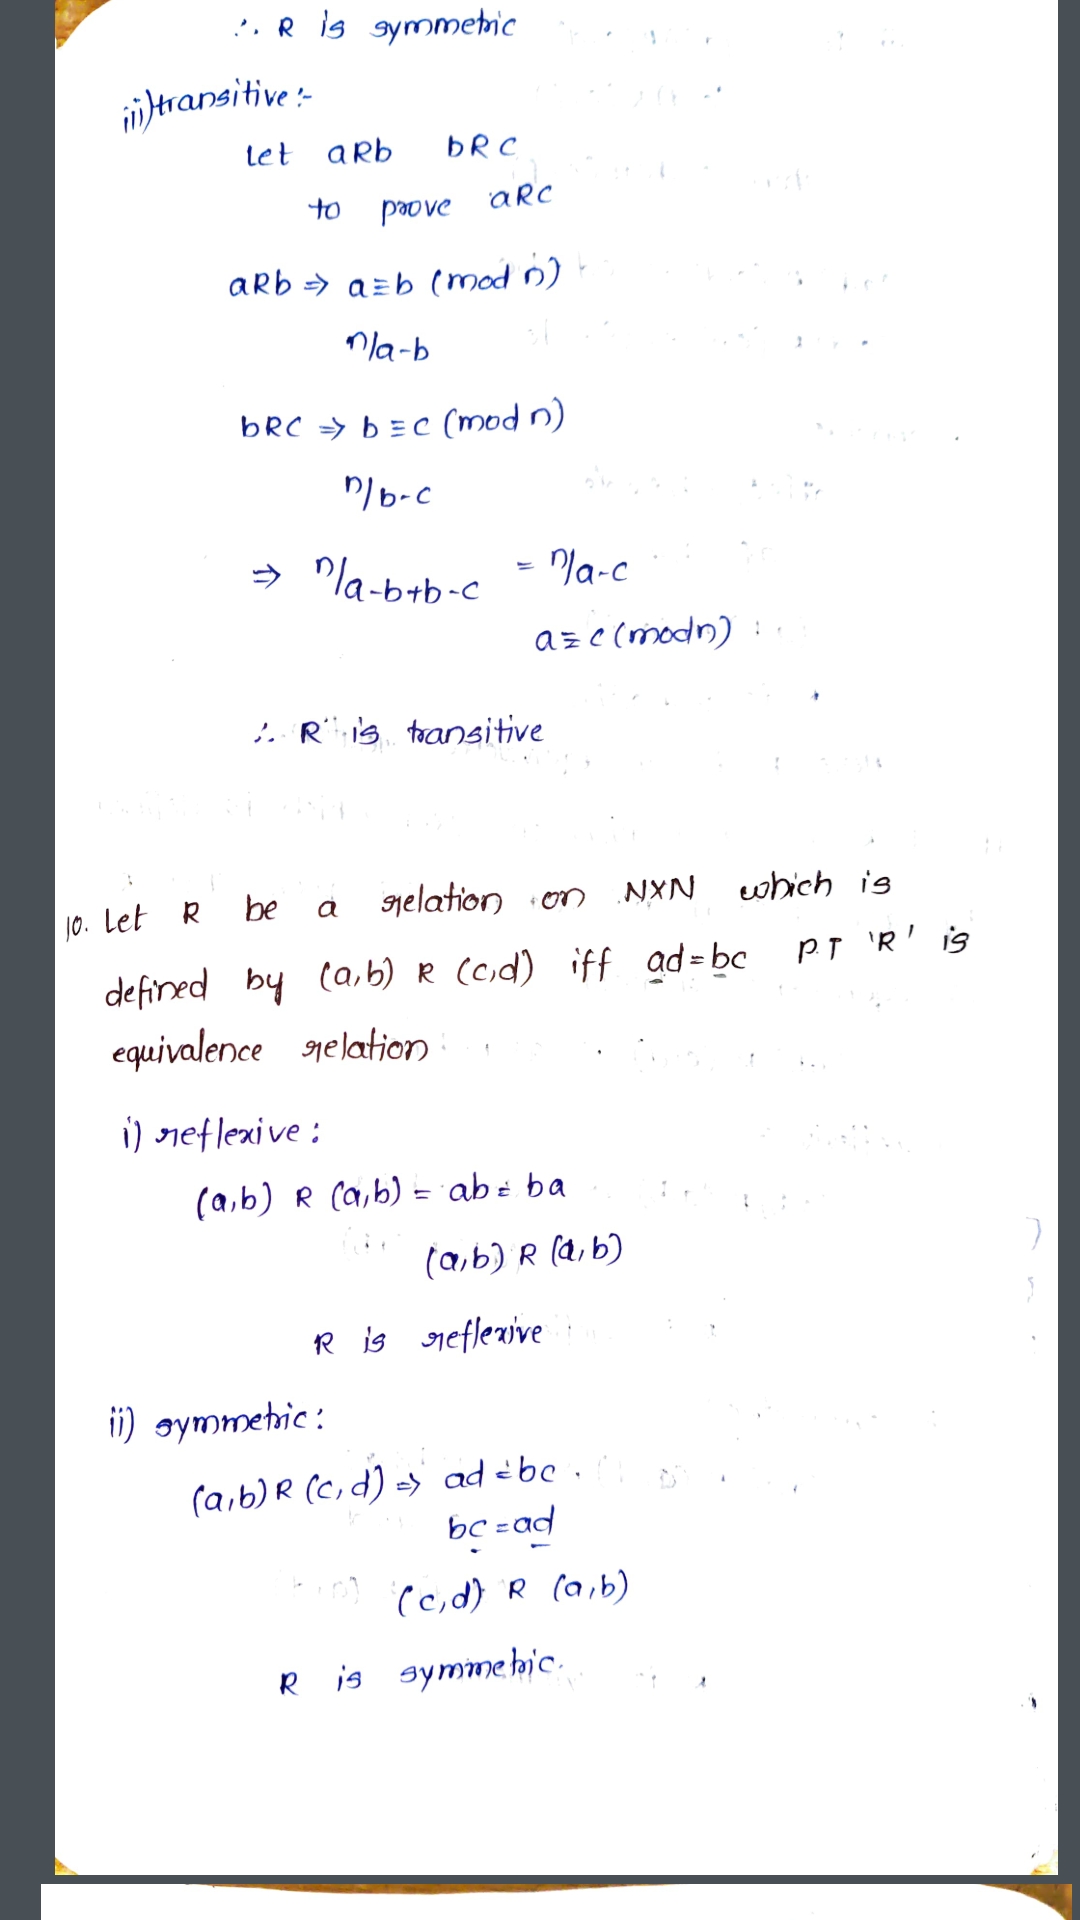 ∴ R is symmetric
iii) transitive :-
Let aRb bRc
to prove aRc
aRb ⇒ a≡b (mod n)
n/a-b
bRc ⇒ b≡c (mod n)
n/b-c
⇒ n/a-b+b-c = n/a-c
a≡c (mod n)
∴ R is transitive
10. Let R be a relation on N×N which is
defined by (a,b) R (c,d) iff ad=bc P.T 'R' is
equivalence relation
i) reflexive :
(a,b) R (a,b) = ab = ba
(a,b) R (a,b)
R is reflexive
ii) symmetric :
(a,b) R (c,d) ⇒ ad = bc .
bc = ad
(c,d) R (a,b)
R is symmetric.